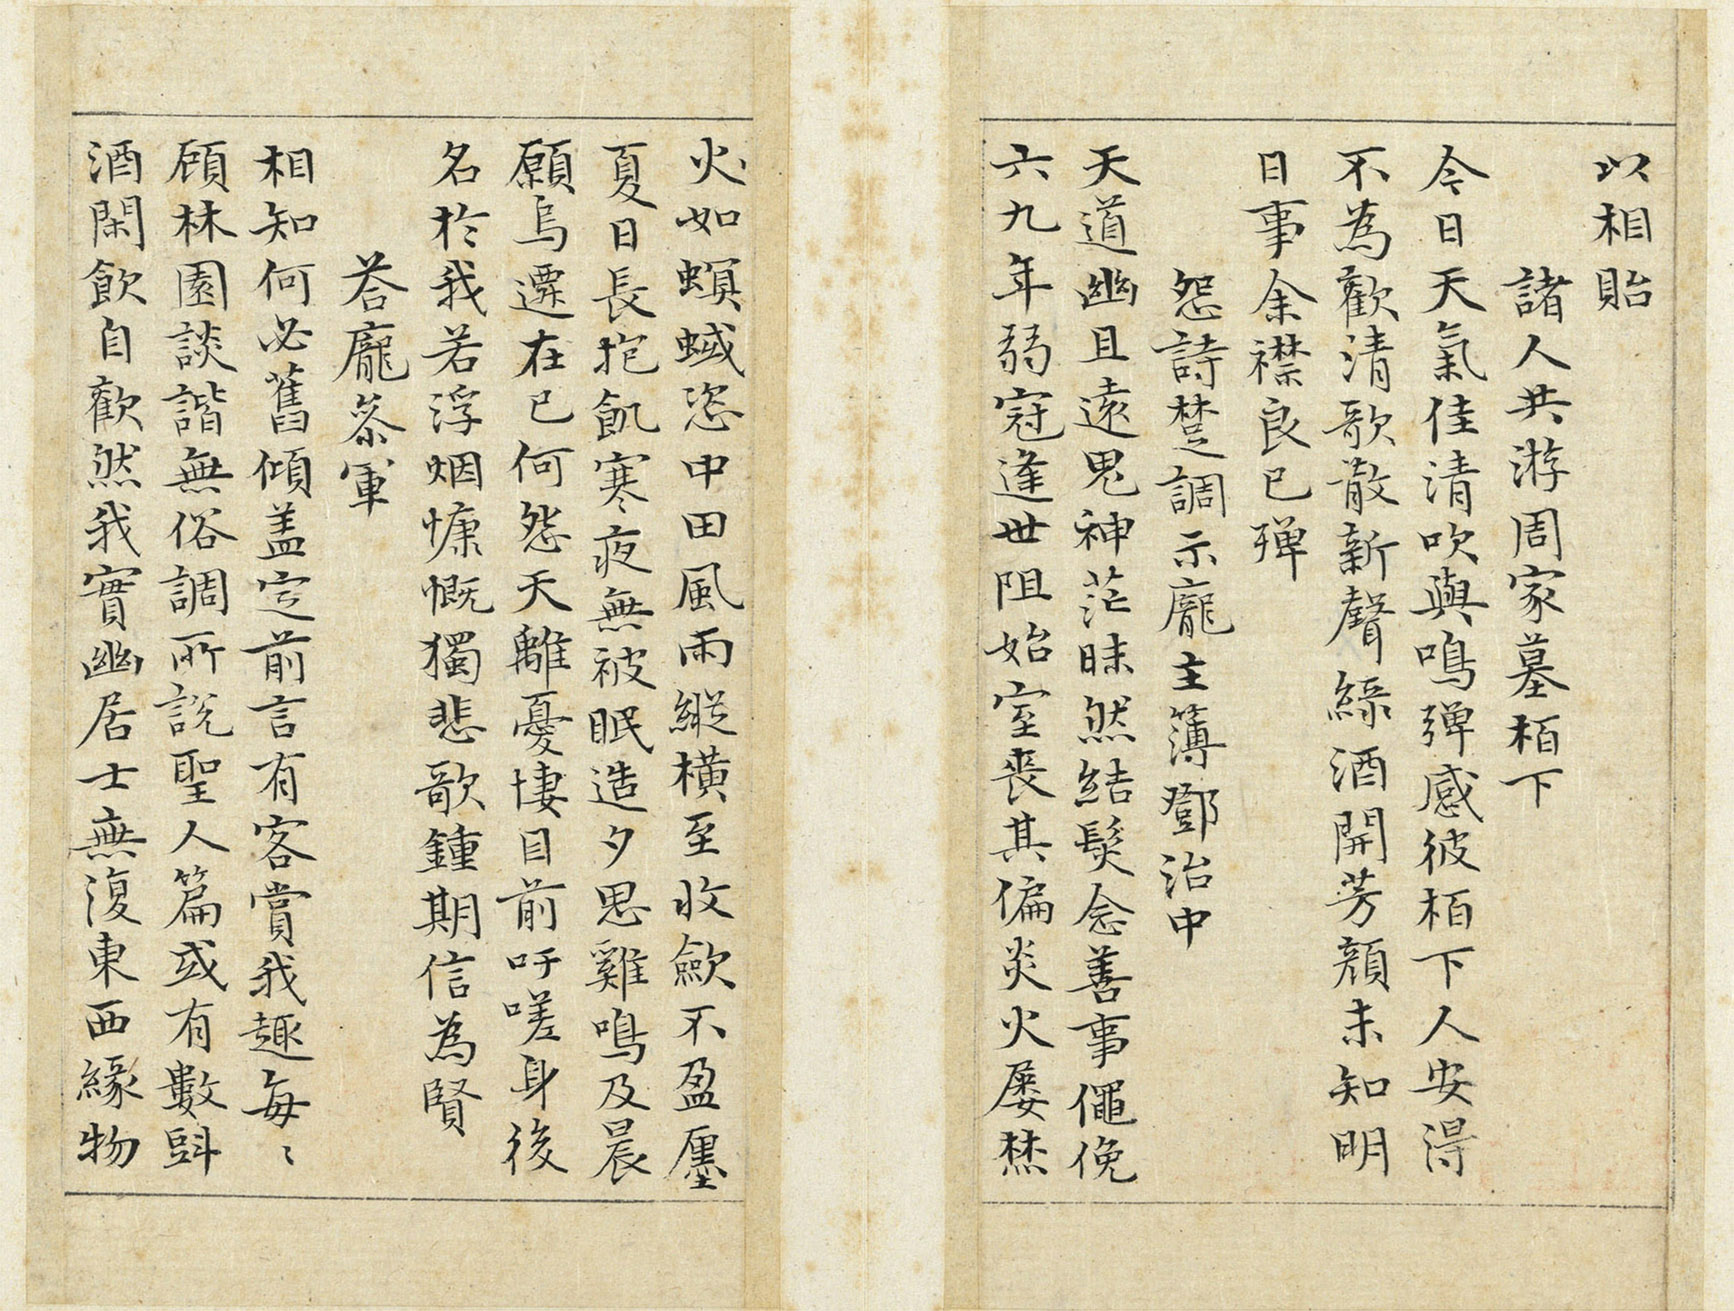 以相貽
諸人共游周家墓栢下
今日天氣佳清吹與鳴彈感彼栢下人安得
不為歡清歌散新聲綠酒開芳顏未知明
日事余襟良已殫
怨詩楚調示龐主簿鄧治中
天道幽且遠鬼神茫昧然結髮念善事僶俛
六九年弱冠逢世阻始室喪其偏炎火屢焚
火如螟蜮恣中田風雨縱橫至收斂不盈廛
夏日長抱飢寒夜無被眠造夕思雞鳴及晨
願烏遷在已何怨天離憂悽目前吁嗟身後
名於我若浮烟慷慨獨悲歌鍾期信為賢
荅龐叅軍
相知何必舊傾盖定前言有客賞我趣每〻
顧林園談諧無俗調所說聖人篇或有數㪷
酒閑飲自歡然我實幽居士無復東西緣物